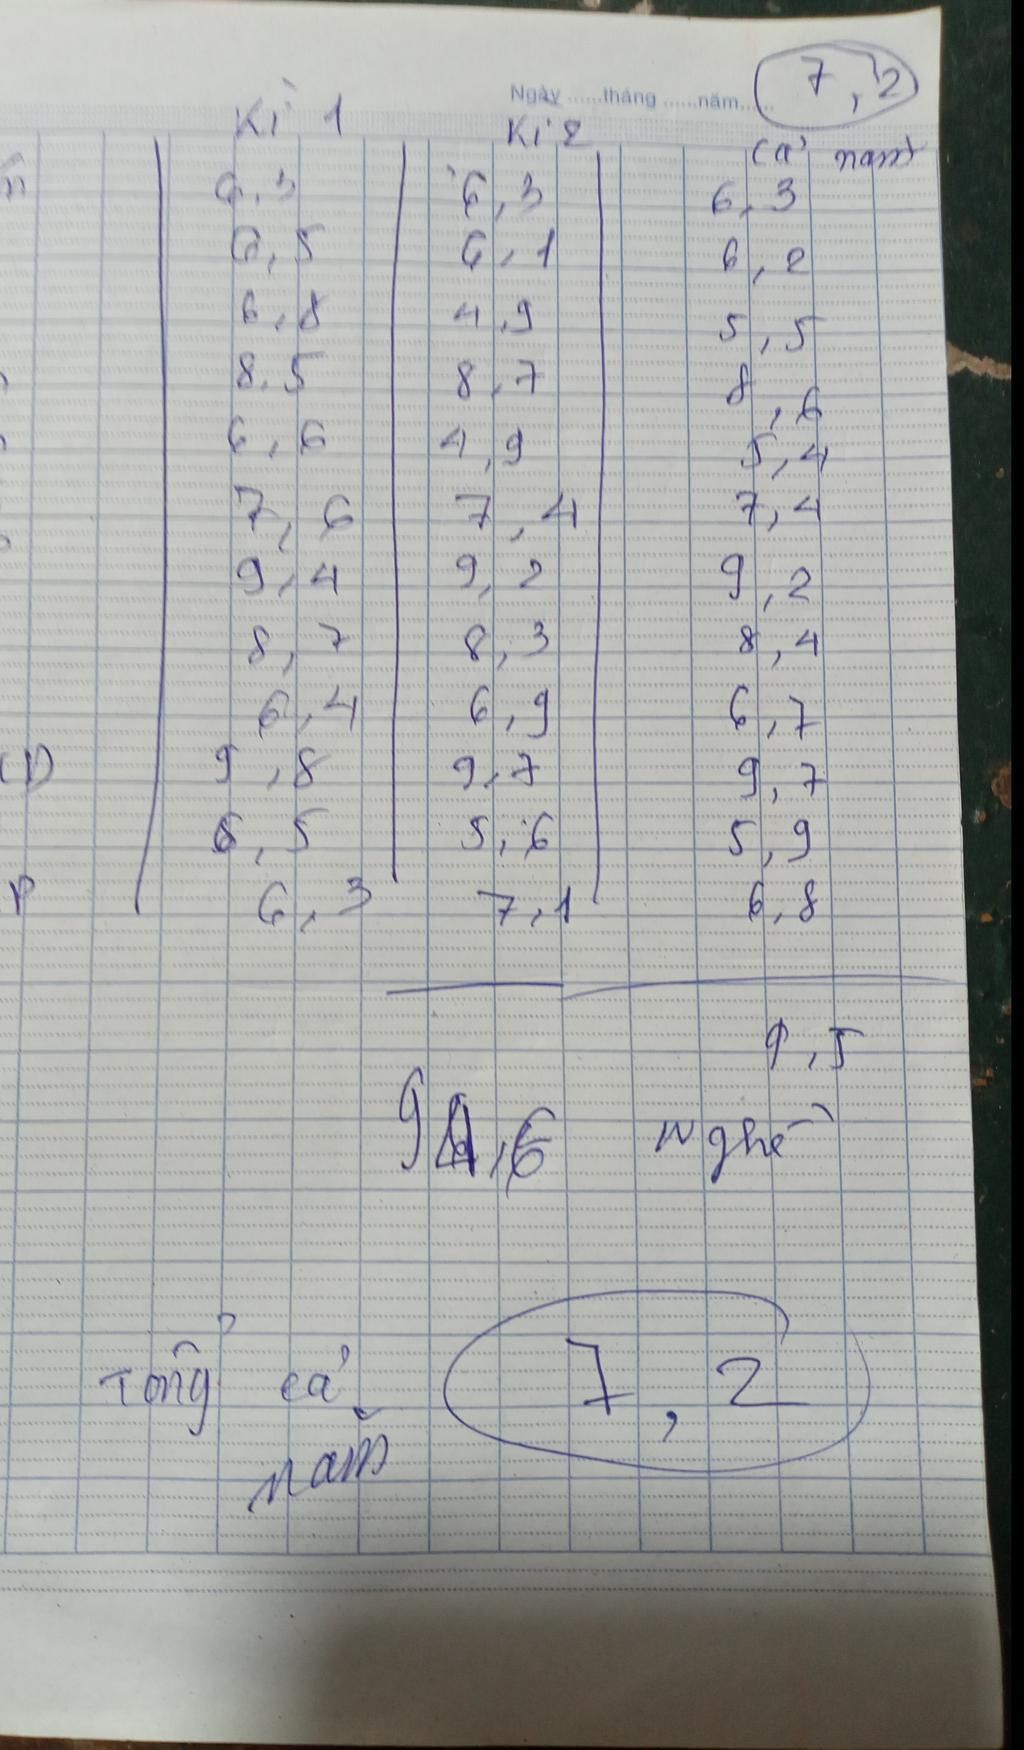 7,2
Ngày ......tháng ......năm......
Kì 1 Kì 2 Cả năm
6,3 6,3 6,3
6,5 6,1 6,2
6,8 4,9 5,5
8,5 8,7 8,6
6,6 4,9 5,4
7,6 7,4 7,4
9,4 9,2 9,2
8,7 8,3 8,4
6,4 6,9 6,7
(D) 9,8 9,7 9,7
6,5 5,6 5,9
P 6,3 7,1 6,8
9,5
nghề
Tổng cả 7,2
năm